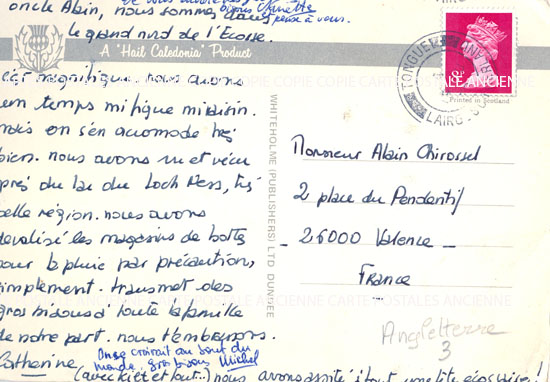 bonne Minette
pense à vous.
oncle Alain, nous sommes dans
le grand nord de l'Ecosse.
A "Hail Caledonia" Product
c'est magnifique. nous avons
un temps mi figue mi raisin.
mais on s'en accomode très
bien. nous avons vu et vécu
près du lac du Loch Ness, très
belle région. nous avons
devalisé les magasins de bottes
pour la pluie par précaution,
simplement. transmet des
gros bisous à toute la famille
de notre part. nous t'embrassons.
Catherine
On se croirait au bout du
monde. gros bisous Michel
(avec kilt et tout..) nous avons assisté à tout
WHITEHOLME (PUBLISHERS) LTD DUNDEE
TONGUE
LAIRG
Printed in Scotland
Monsieur Alain Chirossel
2 place du Pendentif
26000 Valence
France
Angleterre
3
COPIE CARTE POSTALES ANCIENNE